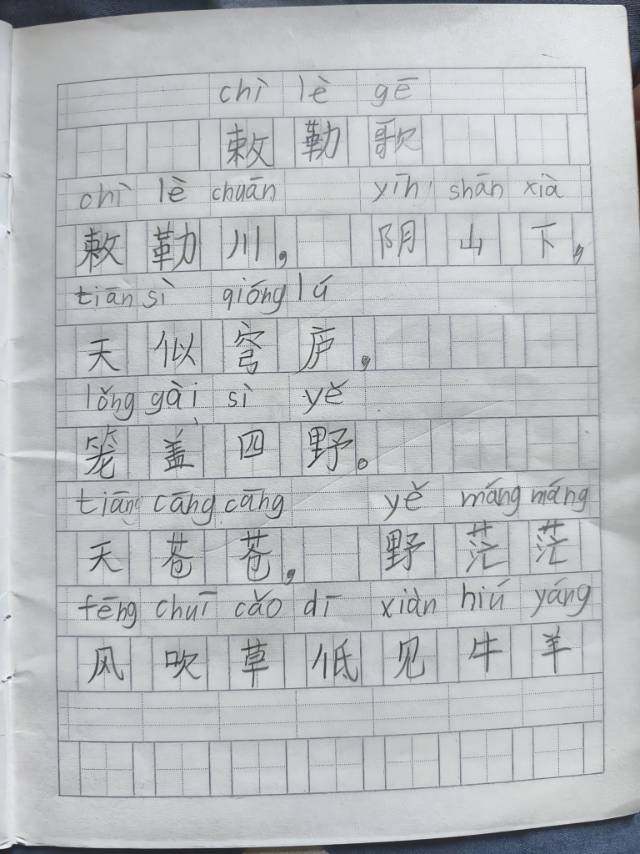 chì lè gē
敕勒歌
chì lè chuān yīn shān xià
敕勒川，阴山下，
tiān sì qióng lú
天似穹庐，
lǒng gài sì yě
笼盖四野。
tiāng cāng cāng yě máng máng
天苍苍，野茫茫
fēng chuī cǎo dī xiàn hiú yáng
风吹草低见牛羊